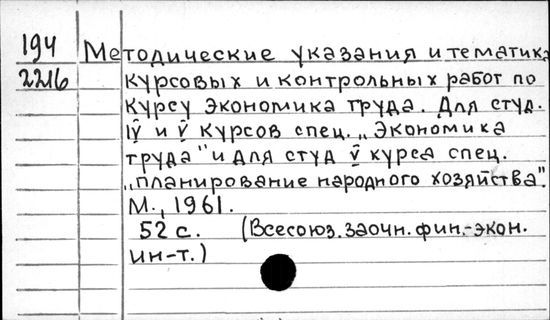 194 Методические указания и тематика
2216 курсовых и контрольных работ по
курсу экономика труда. Для студ.
IV и V курсов спец. „Экономика
труда" и для студ V курса спец.
„планирование народного хозяйства".
М., 1961.
52 с. (Всесоюз. заочн. фин.-экон.
ин-т.)